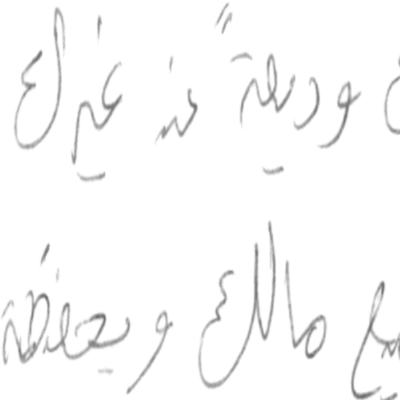 وديعةً عند غيرك
مالك ويحفظه